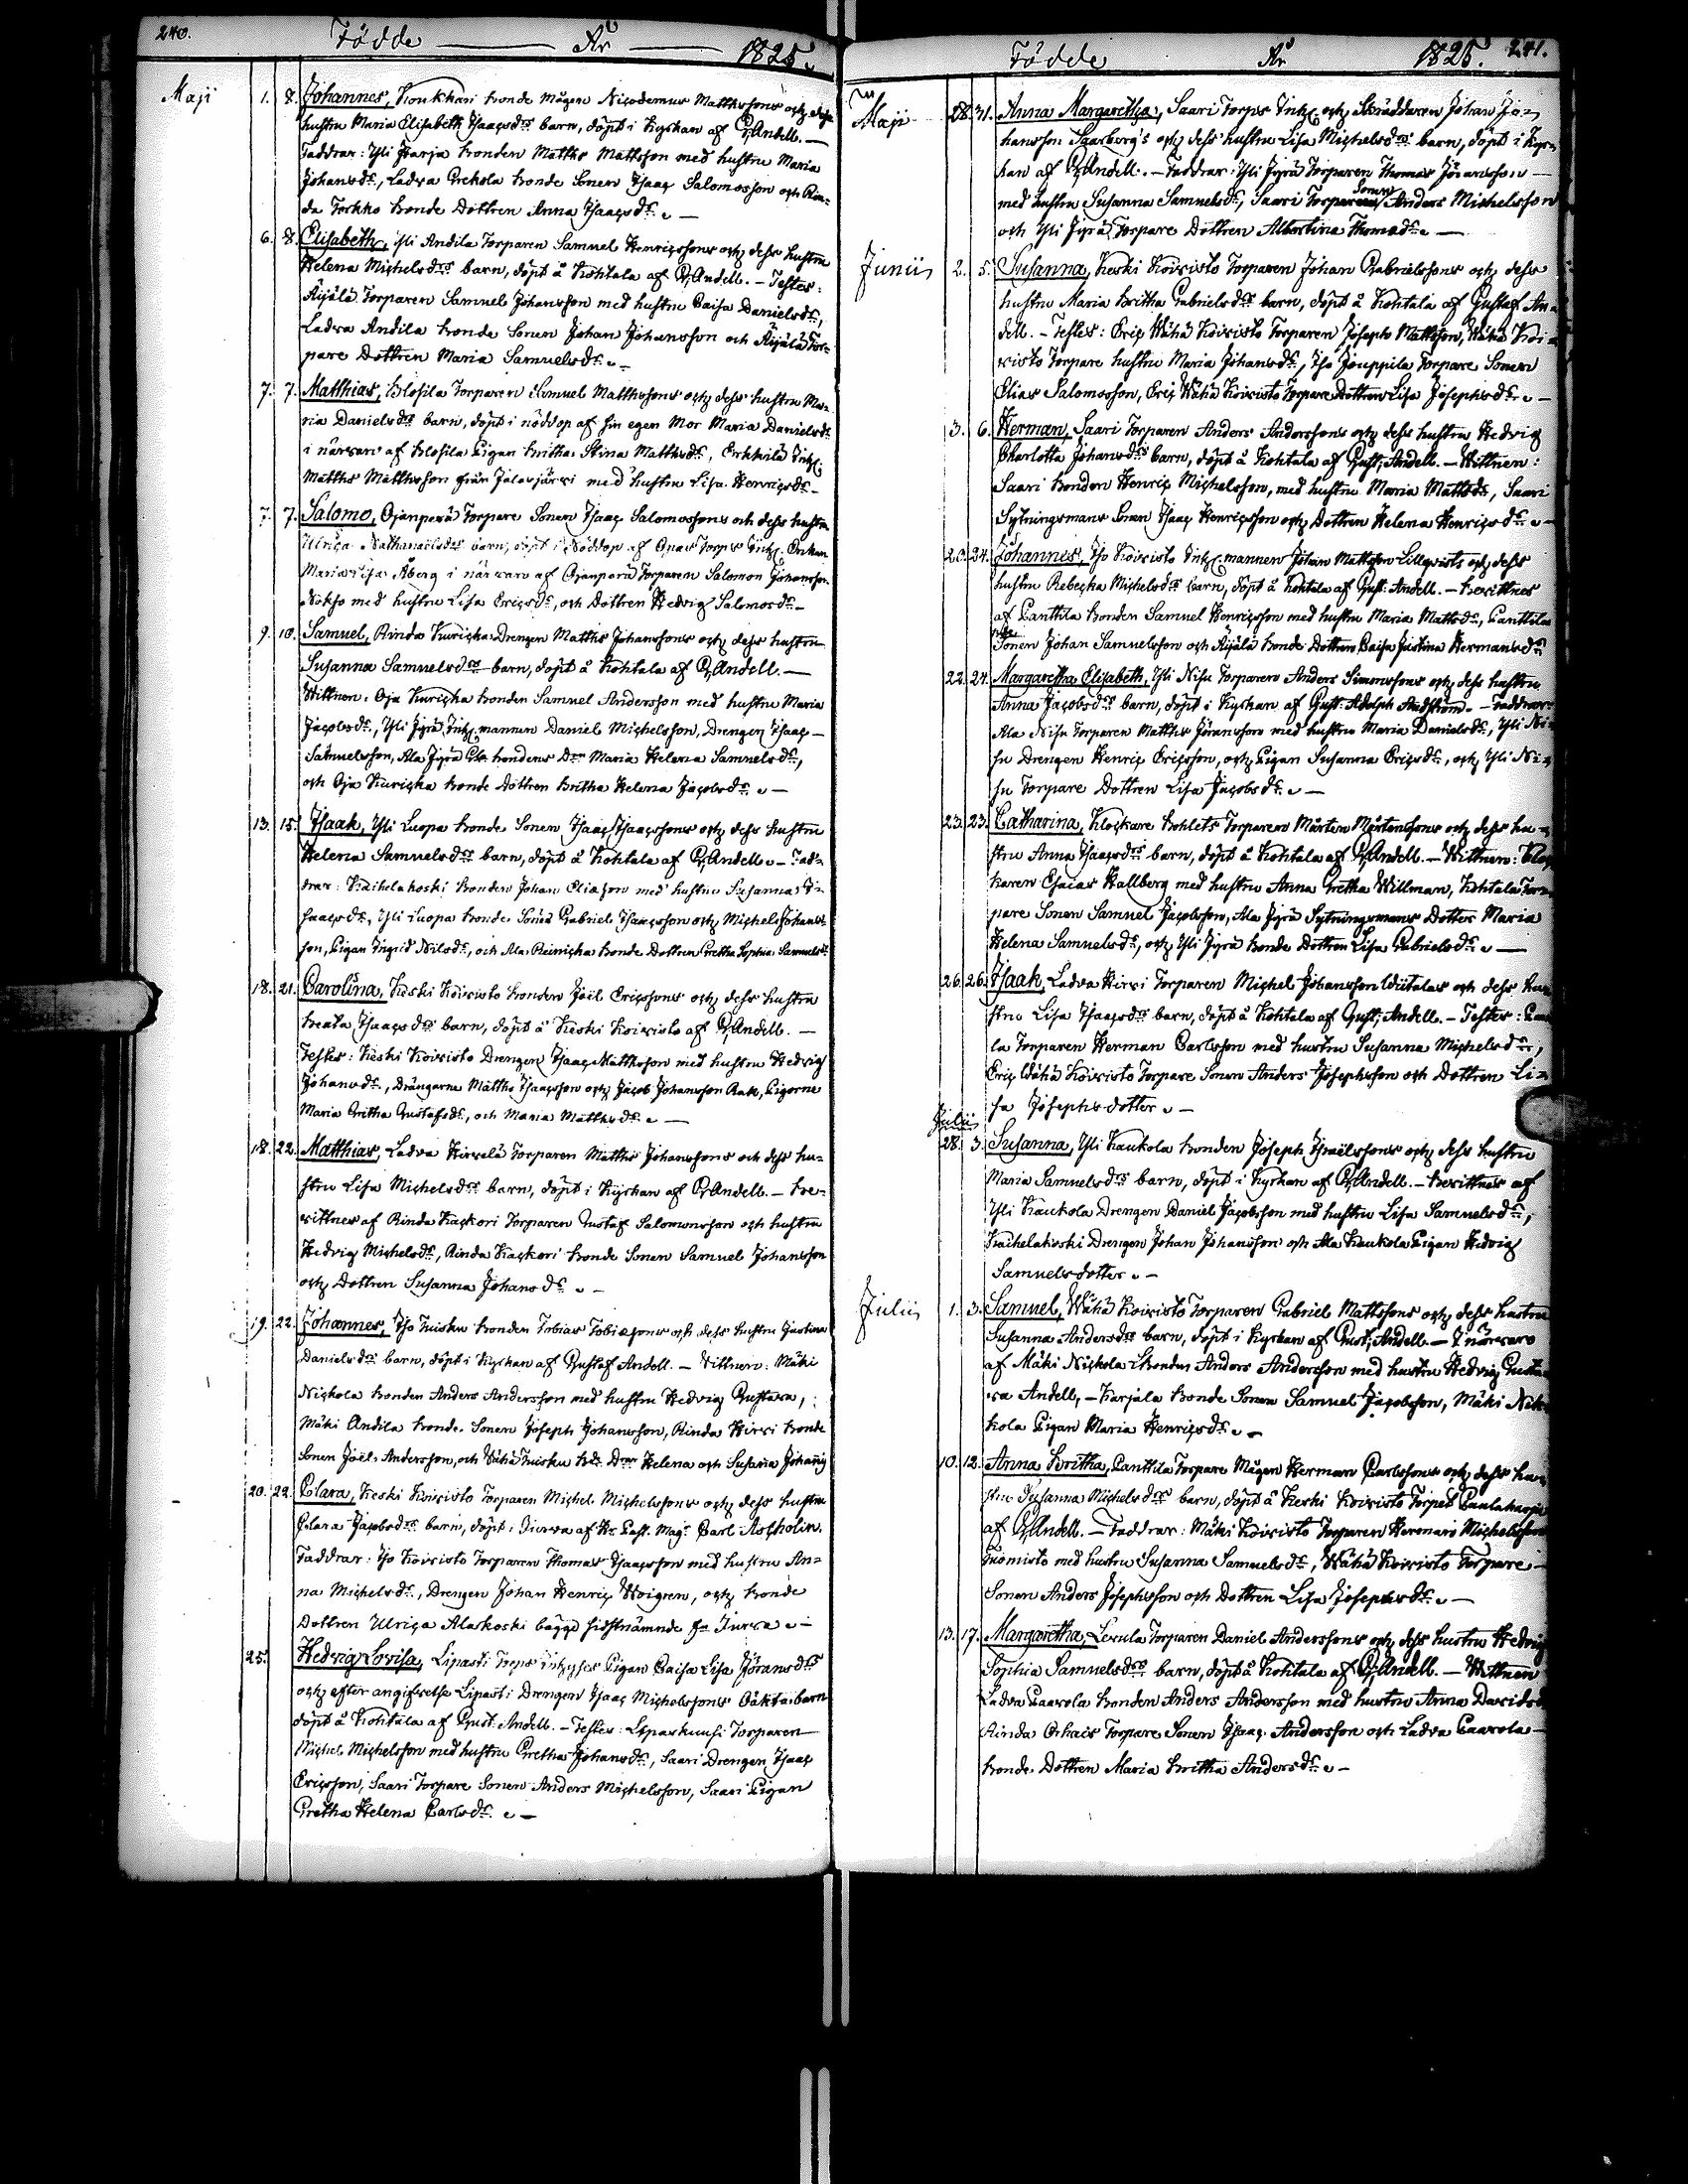 240. Födde År 1825.
Maji 1. 8. Johannes, Koukkari Bonde Mågen Nicodemus Matthssons och dess
hustru Maria Elisabeth Isaacsdrs barn, döpt i Kyrkan af G. Andell. —
Faddrar: Yli Harja Bonden Matths Mattsson med hustru Maria
Johansdr, Ladva Grekola Bonde Sonen Isaac Salomosson och Rin-
da Torkko Bonde Dottren Anna Isaacsdr. —
6. 8. Elisabeth, Yli Andila Torparen Samuel Henricssons och dess hustru
Helena Michelsdrs barn, döpt å Kohtala af G. Andell. — Testes:
Äijälä Torparen Samuel Johansson med hustru Caisa Danielsdr,
Ladva Andila Bonde Sonen Johan Johansson och Äijälä Tor-
pare Dottren Maria Samuelsdr. —
7. 7. Matthias, Blofila Torparen Samuel Matthssons och dess hustru Ma-
ria Danielsdrs barn, döpt i nöddop af sin egen Mor Maria Danielsdr
i närvaro af Blofila Pigan Britha Stina Matthsdr, Erkkilä Inh:
Matths Matthsson från Jalasjärvi med hustru Lisa Henricsdr —
7. 7. Salomo, Ojanperä Torpare Sonen Isaac Salomossons och dess hustru
Ulrica Nathanaelsdrs barn, döpt i Nöddop af Torps Inh: Enkan
Maria Lisa Åberg i närvaro af Ojanperä Torparen Salomon Johansson
Nokso med hustru Lisa Ericsdr, och Dottren Hedvig Salomosdr —
9. 10. Samuel, Rinda Kuricka Drengen Matths Johanssons och dess hustru
Susanna Samuelsdrs barn, döpt å Kohtala af G. Andell. —
Wittnen: Oja Kuricka Bonden Samuel Andersson med hustru Maria
Jacobsdr, Yli Jyrä Inh: mannen Daniel Michelsson, Drengen Isaac —
Samuelsson, Ala Jyrä Bondens Dr Maria Helena Samuelsdr,
och Oja Kuricka Bonde Dottren Britha Helena Jacobsdr. —
13. 15. Isaak, Yli Luopa Bonde Sonen Isaac Isaacssons och dess hustru
Helena Samuelsdrs barn, döpt å Kohtala af G. Andell. — Fad-
drar: Kaihelakoski Bonden Johan Eliasson med hustru Susanna I-
saacsdr, Yli Luopa Bonde Sonen Gabriel Isaacsson och Michel Johans-
son, Pigan Ingrid Nilsdr, och Ala Reinicka Bonde Dottren Gretha Sophia Samuelsdr
18. 21. Carolina, Keski Koivisto Bonden Joël Ericssons och dess hustru
Beata Isaacsdrs barn, döpt å Keski Koivisto af G. Andell. —
Testes: Keski Koivisto Drengen Isaac Matthsson med hustru Hedvig
Johansdr, Drängarne Matths Isaacsson och Jacob Johansson Rak, Pigorne
Maria Gretha Gustafsdr, och Maria Matthsdr. —
18. 22. Matthias, Ladva Hirvelä Torparen Matths Johanssons och dess hu-
stru Lisa Michelsdrs barn, döpt i Kyrkan af G. Andell. — Be-
vittnes af Rinda Kackori Torparen Gustaf Salomonsson och hustru
Hedvig Michelsdr, Rinda Kackori Bonde Sonen Samuel Johansson
och Dottren Susanna Johansdr. —
19. 22. Johannes, Iso Tuisku Bonden Tobias Tobiassons och dess hustru Justina
Danielsdrs barn, döpt i Kyrkan af Gustaf Andell. — Vittnen: Mäki
Nickola Bonden Anders Andersson med hustru Hedvig Gustava,
Mäki Andila Bonde Sonen Joseph Johansson, Rinda Hirvi Bonde
Sonen Joël Andersson, och Vähä Tuisku Bde Drar Helena och Susanna Johans
20. 22. Clara, Keski Koivisto Torparen Michel Michelssons och dess hustru
Clara Jacobsdrs barn, döpt i Jurva af Hr Past. Mag: Carl Astholin.
Faddrar: Iso Koivisto Torparen Thomas Isaacsson med hustru An-
na Michelsdr, Drengen Johan Henric Woigren, och Bonde
Dottren Ulrica Alakoski bägge sidstnämnde fr Jurva. —
25. Hedvig Lovisa, Lipasti Torps Inhyses Pigan Caisa Lisa Jöransdrs
och efter angifvelse Lipasti Drengen Isaac Michelssons Oäkta barn
döpt å Kohtala af Gust: Andell. — Testes: Leparkuusi Torparen
Michel Michelsson med hustru Gretha Johansdr, Saari Drengen Isaac
Ericsson, Saari Torpare Sonen Anders Michelsson, Saari Pigan
Gretha Helena Carlsdr. —
Födde År 1825. 241.
Maji 28. 31. Anna Margaretha, Saari Torps Inh: och Skräddaren Johan Jo-
hansson Saarberg's och dess hustru Lisa Michelsdrs barn, döpt i Kyr-
kan af G. Andell. — Faddrar: Yli Jyrä Torparen Thomas Jöransson —
med hustru Susanna Samuelsdr, Saari Torpare Sonen Anders Michelsson
och Yli Jyrä Torpare Dottren Albertina Thomadr. —
Junii 2. 5. Susanna, Keski Koivisto Torparen Johan Gabrielssons och dess
hustru Maria Britha Gabrielsdrs barn, döpt å Kohtala af Gustaf An-
dell. — Testes: Eric Wähä Koivisto Torparen Joseph Mattsson, Wähä Koi-
visto Torpare hustru Maria Johansdr, Iso Jouppila Torpare Sonen
Elias Salomosson, Eric Wähä Koivisto Torpare Dottren Lisa Josephsdr. —
3. 6. Herman, Saari Torparen Anders Anderssons och dess hustru Hedvig
Charlotta Johansdrs barn, döpt å Kohtala af Gust; Andell. — Wittnen:
Saari Bonden Henric Michelsson, med hustru Maria Mattsdr, Saari
Sytningsmans Sonen Isaac Henricsson och Dottren Helena Henricsdr. —
20. 24. Johannes, Iso Koivisto Inh: mannen Johan Mattsson Lillqvists och dess
hustru Rebecka Michelsdrs barn, döpt å Kohtala af Gust: Andell. — Bevittnes
af Panttila Bonden Samuel Henricsson med hustru Maria Mattsdr, Panttila
Sonen Johan Samuelsson och Äijälä Bonde Dottren Caisa Justina Hermansdr
22. 24. Margaretha Elisabeth, Yli Nisu Torparen Anders Simonssons och dess hustru
Anna Jacobsdrs barn, döpt i Kyrkan af Gust: Adolph Andström. — Faddrar:
Ala Nisu Torparen Matths Jöransson med hustru Maria Danielsdr, Yli Ni-
su Drengen Henric Ericsson, och Pigan Susanna Ericsdr, och Yli Ni-
su Torpare Dottren Lisa Jacobsdr. —
23. 23. Catharina, Klockare Bohlets Torparen Mårten Mårtenssons och dess hu-
stru Anna Isaacsdrs barn, döpt å Kohtala af G. Andell. — Wittnen: Kloc
karen Esaias Hallberg med hustru Anna Gretha Willman, Kohtala Tor-
pare Sonen Samuel Jacobsson, Ala Jyrä Sytningsmans Dotter Maria
Helena Samuelsdr, och Yli Jyrä Bonde Dottren Lisa Gabrielsdr. —
26. 26. Isaak, Ladva Hirvi Torparen Michel Johansson Uutalas och dess hu
stru Lisa Isaacsdrs barn, döpt å Kohtala af Gust; Andell. — Testes:
la Torparen Herman Carlsson med hustru Susanna Michelsdr,
Eric Wähä Koivisto Torpare Sonen Anders Josephsson och Dottren Li-
sa Josephsdotter. —
Julii
28. 3. Susanna, Yli Kaukola Bonden Joseph Israëlssons och dess hustru
Maria Samuelsdrs barn, döpt i Kyrkan af G. Andell. — Bevittnes af
Yli Kaukola Drengen Daniel Jacobsson med hustru Lisa Samuelsdr,
Kaihelakoski Drengen Johan Johansson och Ala Kaukola Pigan Hedvig
Samuelsdotter. —
Julii 1. 3. Samuel, Wähä Koivisto Torparen Gabriel Mattssons och dess hustru
Susanna Andersdrs barn, döpt i Kyrkan af Gust; Andell. — I närvaro
af Mäki Nickola Bonden Anders Andersson med hustru Hedvig Gusta
va Andell, — Karjala Bonde Sonen Samuel Jacobsson, Mäki Nik
kola Pigan Maria Henricsdr. —
10. 12. Anna Britha, Panttila Torpare Mågen Herman Carlssons och dess hu-
stru Susanna Michelsdrs barn, döpt å Keski Koivisto Torpet Paulaharju
af G. Andell. — Faddrar: Mäki Koivisto Torparen Herman Michelsson
Tuomisto med hustru Susanna Samuelsdr, Wähä Koivisto Torpare —
Sonen Anders Josephsson och Dottren Lisa Josephsdr. —
13. 17. Margaretha, Lexula Torparen Daniel Anderssons och dess hustru Hedvig
Sophia Samuelsdrs barn, döpt å Kohtala af G. Andell. — Wittnen
Ladva Paavola Bonden Anders Andersson med hustru Anna Davidsd
Rinda Torpare Sonen Isaac Andersson och Ladva Paavola —
Bonde Dottren Maria Britha Andersdr. —